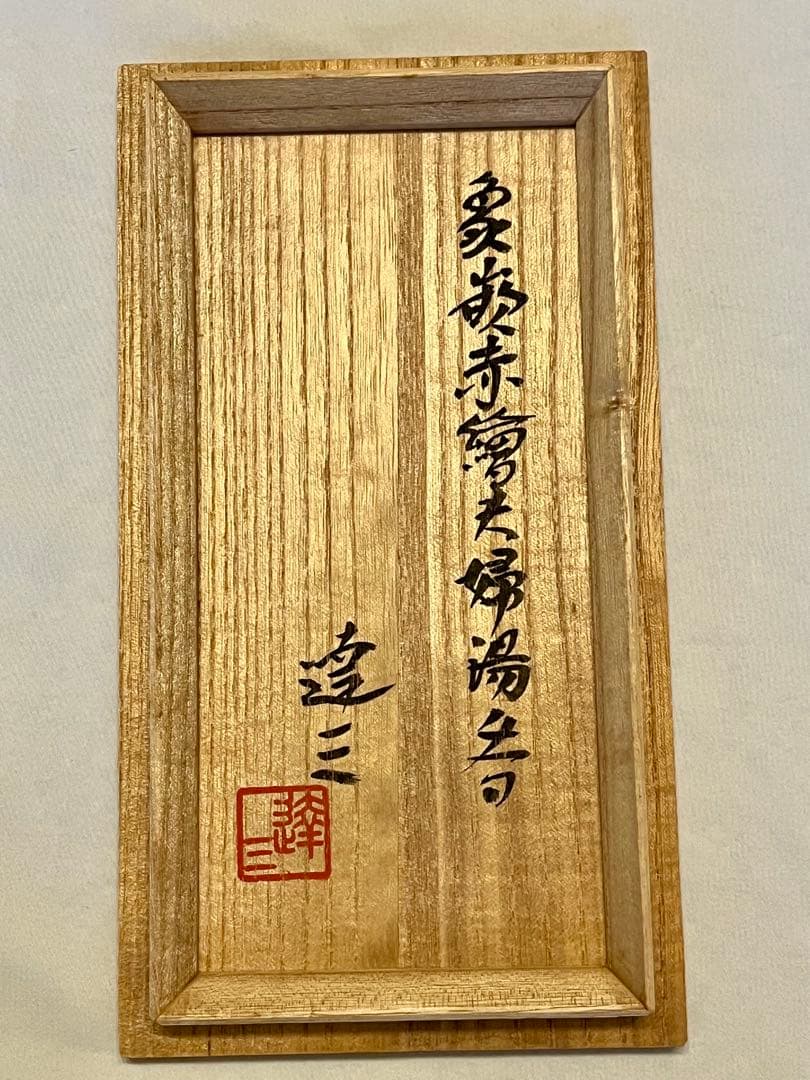 象嵌赤繪夫婦湯呑
達三
達三